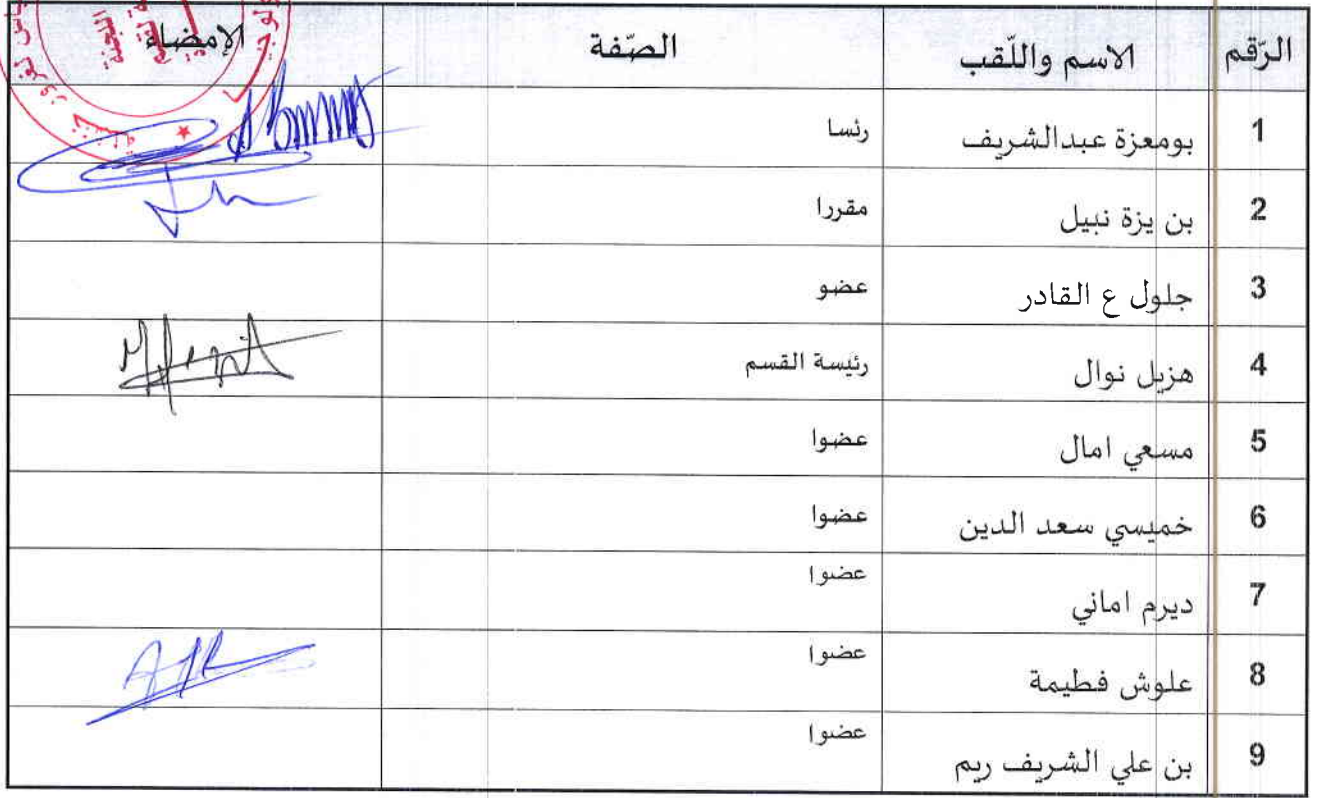 الرّقم الاسم واللّقب الصّفة الإمضاء
1 بومعزة عبدالشريف رئسا
2 بن يزة نبيل مقررا
3 جلول ع القادر عضو
4 هزيل نوال رئيسة القسم
5 مسعي امال عضوا
6 خميسي سعد الدين عضوا
7 ديرم اماني عضوا
8 علوش فطيمة عضوا
9 بن علي الشريف ريم عضوا
اللجنة